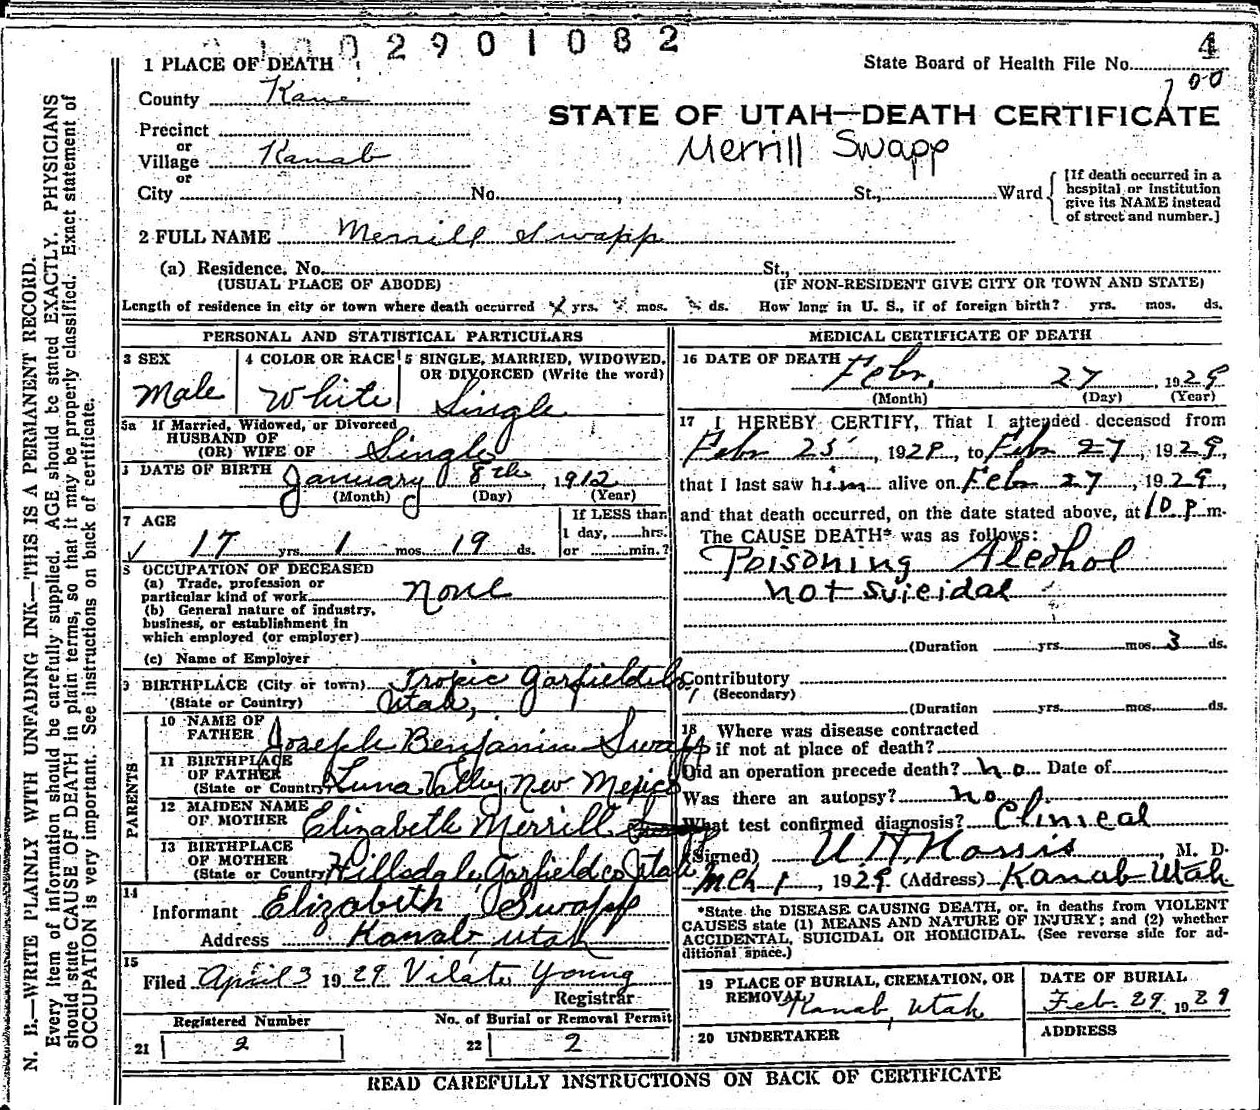 2901082
4
1 PLACE OF DEATH
State Board of Health File No.
700
County Kane
STATE OF UTAH—DEATH CERTIFICATE
Precinct
or
Village Kanab
Merrill Swapp
or
City No. St., Ward
[If death occurred in a
hospital or institution
give its NAME instead
of street and number.]
2 FULL NAME Merrill Swapp
(a) Residence. No. St.,
(USUAL PLACE OF ABODE) (IF NON-RESIDENT GIVE CITY OR TOWN AND STATE)
Length of residence in city or town where death occurred yrs. mos. ds. How long in U. S., if of foreign birth? yrs. mos. ds.
PERSONAL AND STATISTICAL PARTICULARS
3 SEX
Male
4 COLOR OR RACE
White
5 SINGLE, MARRIED, WIDOWED,
OR DIVORCED (Write the word)
Single
5a If Married, Widowed, or Divorced
HUSBAND OF
(OR) WIFE OF Single
DATE OF BIRTH January 8th, 1912
(Month) (Day) (Year)
7 AGE
17 yrs. 1 mos. 19 ds.
If LESS than
1 day, hrs.
or min.?
8 OCCUPATION OF DECEASED
(a) Trade, profession or
particular kind of work None
(b) General nature of industry,
business, or establishment in
which employed (or employer)
(c) Name of Employer
9 BIRTHPLACE (City or town) Tropic Garfield Co
(State or Country) Utah,
PARENTS
10 NAME OF
FATHER Joseph Benjamin Swapp
11 BIRTHPLACE
OF FATHER
(State or Country) Luna Valley, New Mexico
12 MAIDEN NAME
OF MOTHER Elizabeth Merrill
13 BIRTHPLACE
OF MOTHER
(State or Country) Hillsdale, Garfield co Utah
14
Informant Elizabeth Swapp
Address Kanab, Utah
15
Filed April 3 1929 Vilate Young
Registrar
Registered Number
21 2
No. of Burial or Removal Permit
22 2
MEDICAL CERTIFICATE OF DEATH
16 DATE OF DEATH Febr. 27, 1929
(Month) (Day) (Year)
17 I HEREBY CERTIFY, That I attended deceased from
Febr 25, 1929, to Febr 27, 1929,
that I last saw him alive on Febr 27, 1929,
and that death occurred, on the date stated above, at 10 P m.
The CAUSE DEATH* was as follows:
Poisoning Alcohol
not suicidal
(Duration yrs. mos. 3 ds.
Contributory
(Secondary)
(Duration yrs. mos. ds.
18 Where was disease contracted
if not at place of death?
Did an operation precede death? no Date of
Was there an autopsy? no
What test confirmed diagnosis? Clinical
(Signed) Norris, M. D.
Mch 1, 1929 (Address) Kanab Utah
*State the DISEASE CAUSING DEATH, or, in deaths from VIOLENT
CAUSES state (1) MEANS AND NATURE OF INJURY; and (2) whether
ACCIDENTAL, SUICIDAL OR HOMICIDAL. (See reverse side for ad-
ditional space.)
19 PLACE OF BURIAL, CREMATION, OR
REMOVAL Kanab, Utah
DATE OF BURIAL
Feb. 29, 1929
20 UNDERTAKER
ADDRESS
READ CAREFULLY INSTRUCTIONS ON BACK OF CERTIFICATE
N. B.—WRITE PLAINLY WITH UNFADING INK—THIS IS A PERMANENT RECORD.
Every item of information should be carefully supplied. AGE should be stated EXACTLY. PHYSICIANS
should state CAUSE OF DEATH in plain terms, so that it may be properly classified. Exact statement of
OCCUPATION is very important. See instructions on back of certificate.